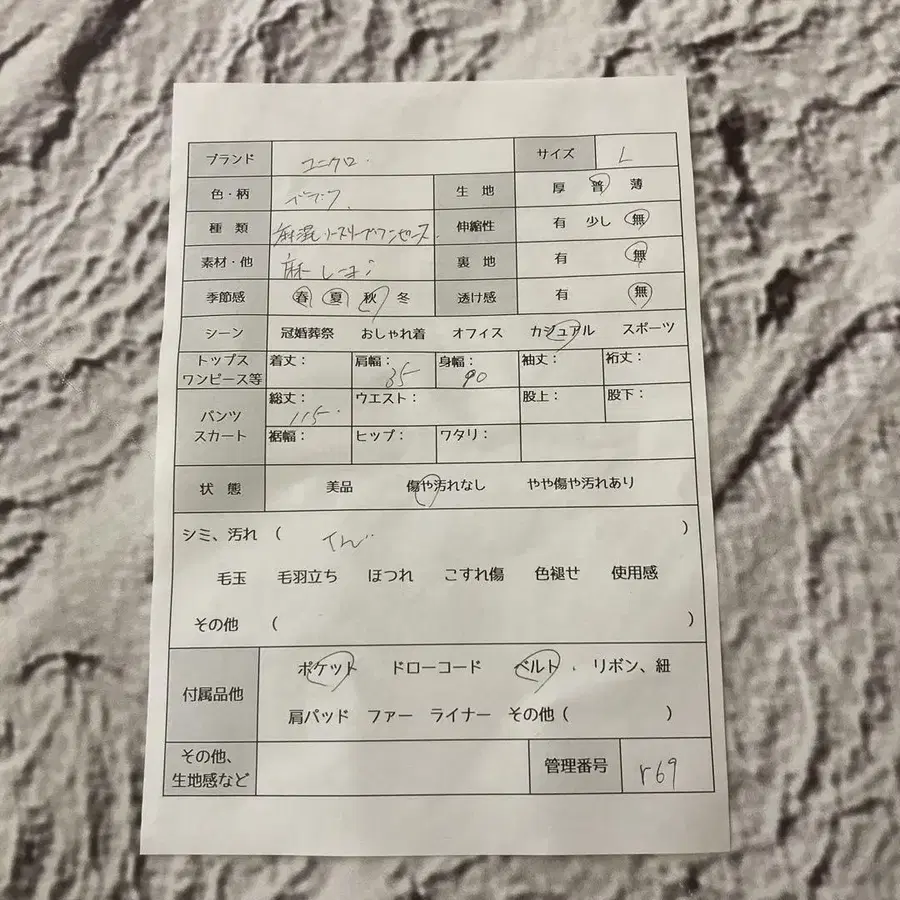 ブランド ユニクロ サイズ L
色・柄 生地 厚 普 薄
種類 麻混ノースリーブワンピース 伸縮性 有 少し 無
素材・他 麻 レーヨン 裏地 有 無
季節感 春 夏 秋 冬 透け感 有 無
シーン 冠婚葬祭 おしゃれ着 オフィス カジュアル スポーツ
トップス ワンピース等 着丈： 肩幅：35 身幅：90 袖丈： 裄丈：
パンツ スカート 総丈：115 ウエスト： 股上： 股下：
裾幅： ヒップ： ワタリ：
状態 美品 傷や汚れなし やや傷や汚れあり
シミ、汚れ （ ）
毛玉 毛羽立ち ほつれ こすれ傷 色褪せ 使用感
その他 （ ）
付属品他 ポケット ドローコード ベルト 、リボン、紐
肩パッド ファー ライナー その他（ ）
その他、生地感など 管理番号 r69